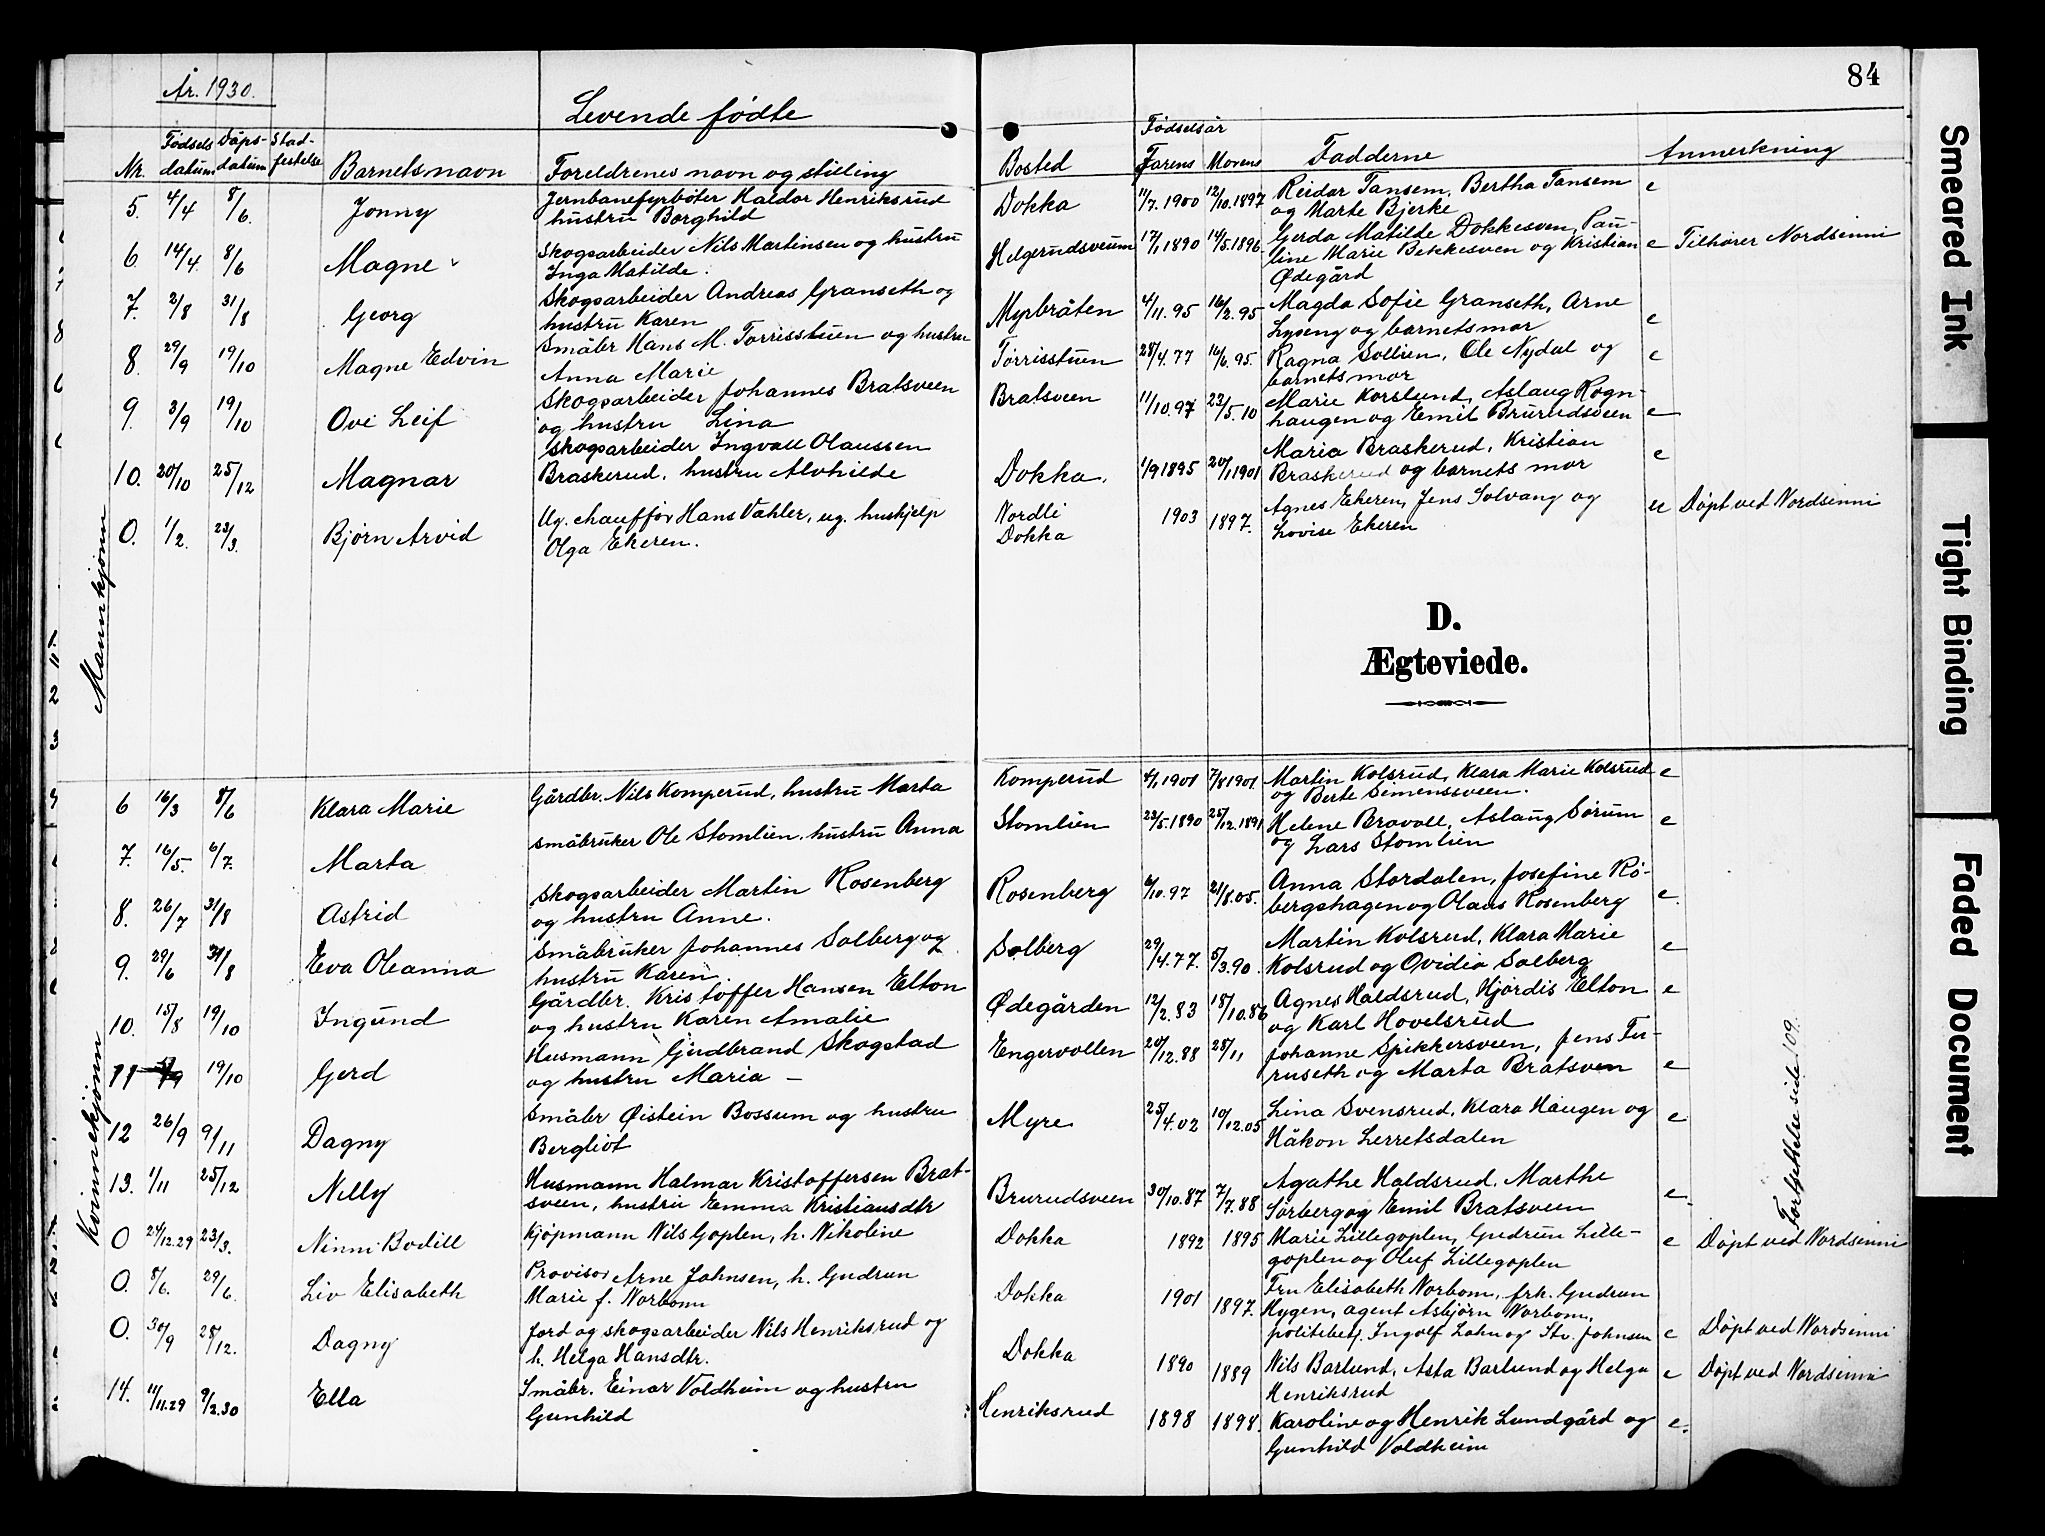 84
År. 1930.
Levende fødte
Nr. Fødselsdatum Dåpsdatum Stadfestelse Barnets navn Foreldrenes navn og stilling Bosted Fødselsår Farens Morens Fadderne Anmerkning
Mannkjønn
5. 4/4 8/6. Jonny Jernbanefyrbøter Haldor Henriksrud Dokka 11/7.1900 12/10.1897 Reidar Tansem, Bertha Tansem e
hustru Borghild og Marte Bjerke
6. 14/4. 8/6 Magne Skogsarbeider Nils Martinsen og hustru Helgerudsveum 17/1 1890 14/5.1896 Gerda Matilde Dokkesven, Pau- e Tilhører Nordsinni
Inga Matilde. line Marie Bekkesven og Kristian
Ødegård
7. 2/8 31/8 Georg Skogsarbeider Andreas Granseth og Myrbråten 4/11.95 16/2.95 Magda Sofie Granseth, Arne e
hustru Karen Lyseng og barnets mor
8. 29/9 19/10 Magne Edvin Småbr Hans M. Torrisstuen og hustru Torrisstuen 28/4.77 16/6.95. Ragna Sollien, Ole Nydal og e
Anna Marie barnets mor
9. 3/9 19/10 Ove Leif Skogsarbeider Johannes Bratsveen Bratsveen 11/10.97 23/5.10 Marie Korslund, Aslaug Rogn- e
og hustru Lina haugen og Emil Brurudsveen
10. 20/10 25/12 Magnar Skogsarbeider Ingvall Olaussen Dokka. 1/9 1895 20/1 1901 Maria Braskerud, Kristian e
Braskerud, hustru Alvhilde Braskerud og barnets mor
0. 1/2. 23/3. Bjørn Arvid Ug. chauffør Hans Vahler, ug. huskjelp Nordli 1903 1897. Agnes Ekeren, Jens Solvang og ue Døpt ved Nordsinni
Olga Ekeren. Dokka Lovise Ekeren
D.
Ægteviede.
Kvinnekjønn
6 16/3 8/6 Klara Marie Gårdbr. Nils Komperud, hustru Marta Komperud 4/1 1901 7/8 1901 Martin Kolsrud, Klara Marie Kolsrud e
og Berte Simenssveen.
7. 16/5. 6/7. Marta småbruker Ole Stomlien, hustru Anna Stomlien 23/5.1890 25/12.1891 Helene Bravoll, Aslaug Sørum e
og Lars Stomlien
8. 26/7 31/8 Astrid Skogsarbeider Martin Rosenberg Rosenberg 4/10.97 21/8.05. Anna Stordalen, Josefine Rø- e.
og hustru Anne. bergshagen og Olaus Rosenberg
9. 29/6 31/8 Eva Oleanna Småbruker Johannes Solberg og Solberg 29/4.77. 5/3.90. Martin Kolsrud, Klara Marie e
hustru Karen. Kolsrud og Ovidia Solberg
10. 15/8 19/10 Ingund Gårdbr. Kristoffer Hansen Elton Ødegården 12/2.83 18/10.86 Agnes Haldsrud, Hjørdis Elton e
og hustru Karen Amalie og Karl Hovelsrud
11 19/10 Gerd Husmann Gudbrand Skogstad Engervollen 20/12.88 28/11 Johanne Spikkersveen, Jens Fu- e
og hustru Maria – ruseth og Marta Bratsven
12 26/9 9/11 Dagny Småbr Øistein Bossum og hustru Myre 25/4.02 10/12.05 Lina Svensrud, Klara Haugen og e
Bergliot Håkon Lerretsdalen
13. 1/11 25/12 Nelly Husmann Halmar Kristoffersen Brat- Brurudsveen 30/10.87 7/7.88 Agathe Haldsrud, Marthe e.
sveen, hustru Emma Kristiansdtr Sørberg og Emil Bratsveen
0 24/12.29 23/3. Ninni Bodill Kjøpmann Nils Goplen, h. Nikoline Dokka 1892 1895 Marie Lillegoplen, Gudrun Lille- e Døpt ved Nordsinni
goplen og Oluf Lillegoplen
0. 8/6. 29/6. Liv Elisabeth Provisor Arne Johnsen, h. Gudrun Dokka 1901 1897. Fru Elisabeth Norbom, frk. Gudrun
Marie f. Norbom Hygen, agent Asbjørn Norbom,
politibetj. Ingolf Lohn og Stv. Johnsen e Døpt ved Nordsinni
0. 30/9 28/12. Dagny Jord og skogsarbeider Nils Henriksrud og Dokka 1890 1889 Nils Barlund, Asta Barlund og Helga e Døpt ved Nordsinni
h. Helga Hansdtr. Henriksrud
14. 11/11.29 9/2.30 Ella Småbr. Einar Voldheim og hustru Henriksrud 1898 1898. Karoline og Henrik Lundgård og e.
Gunhild Gunhild Voldheim
Fortsettelse side 109.
Smeared Ink
Tight Binding
Faded Document